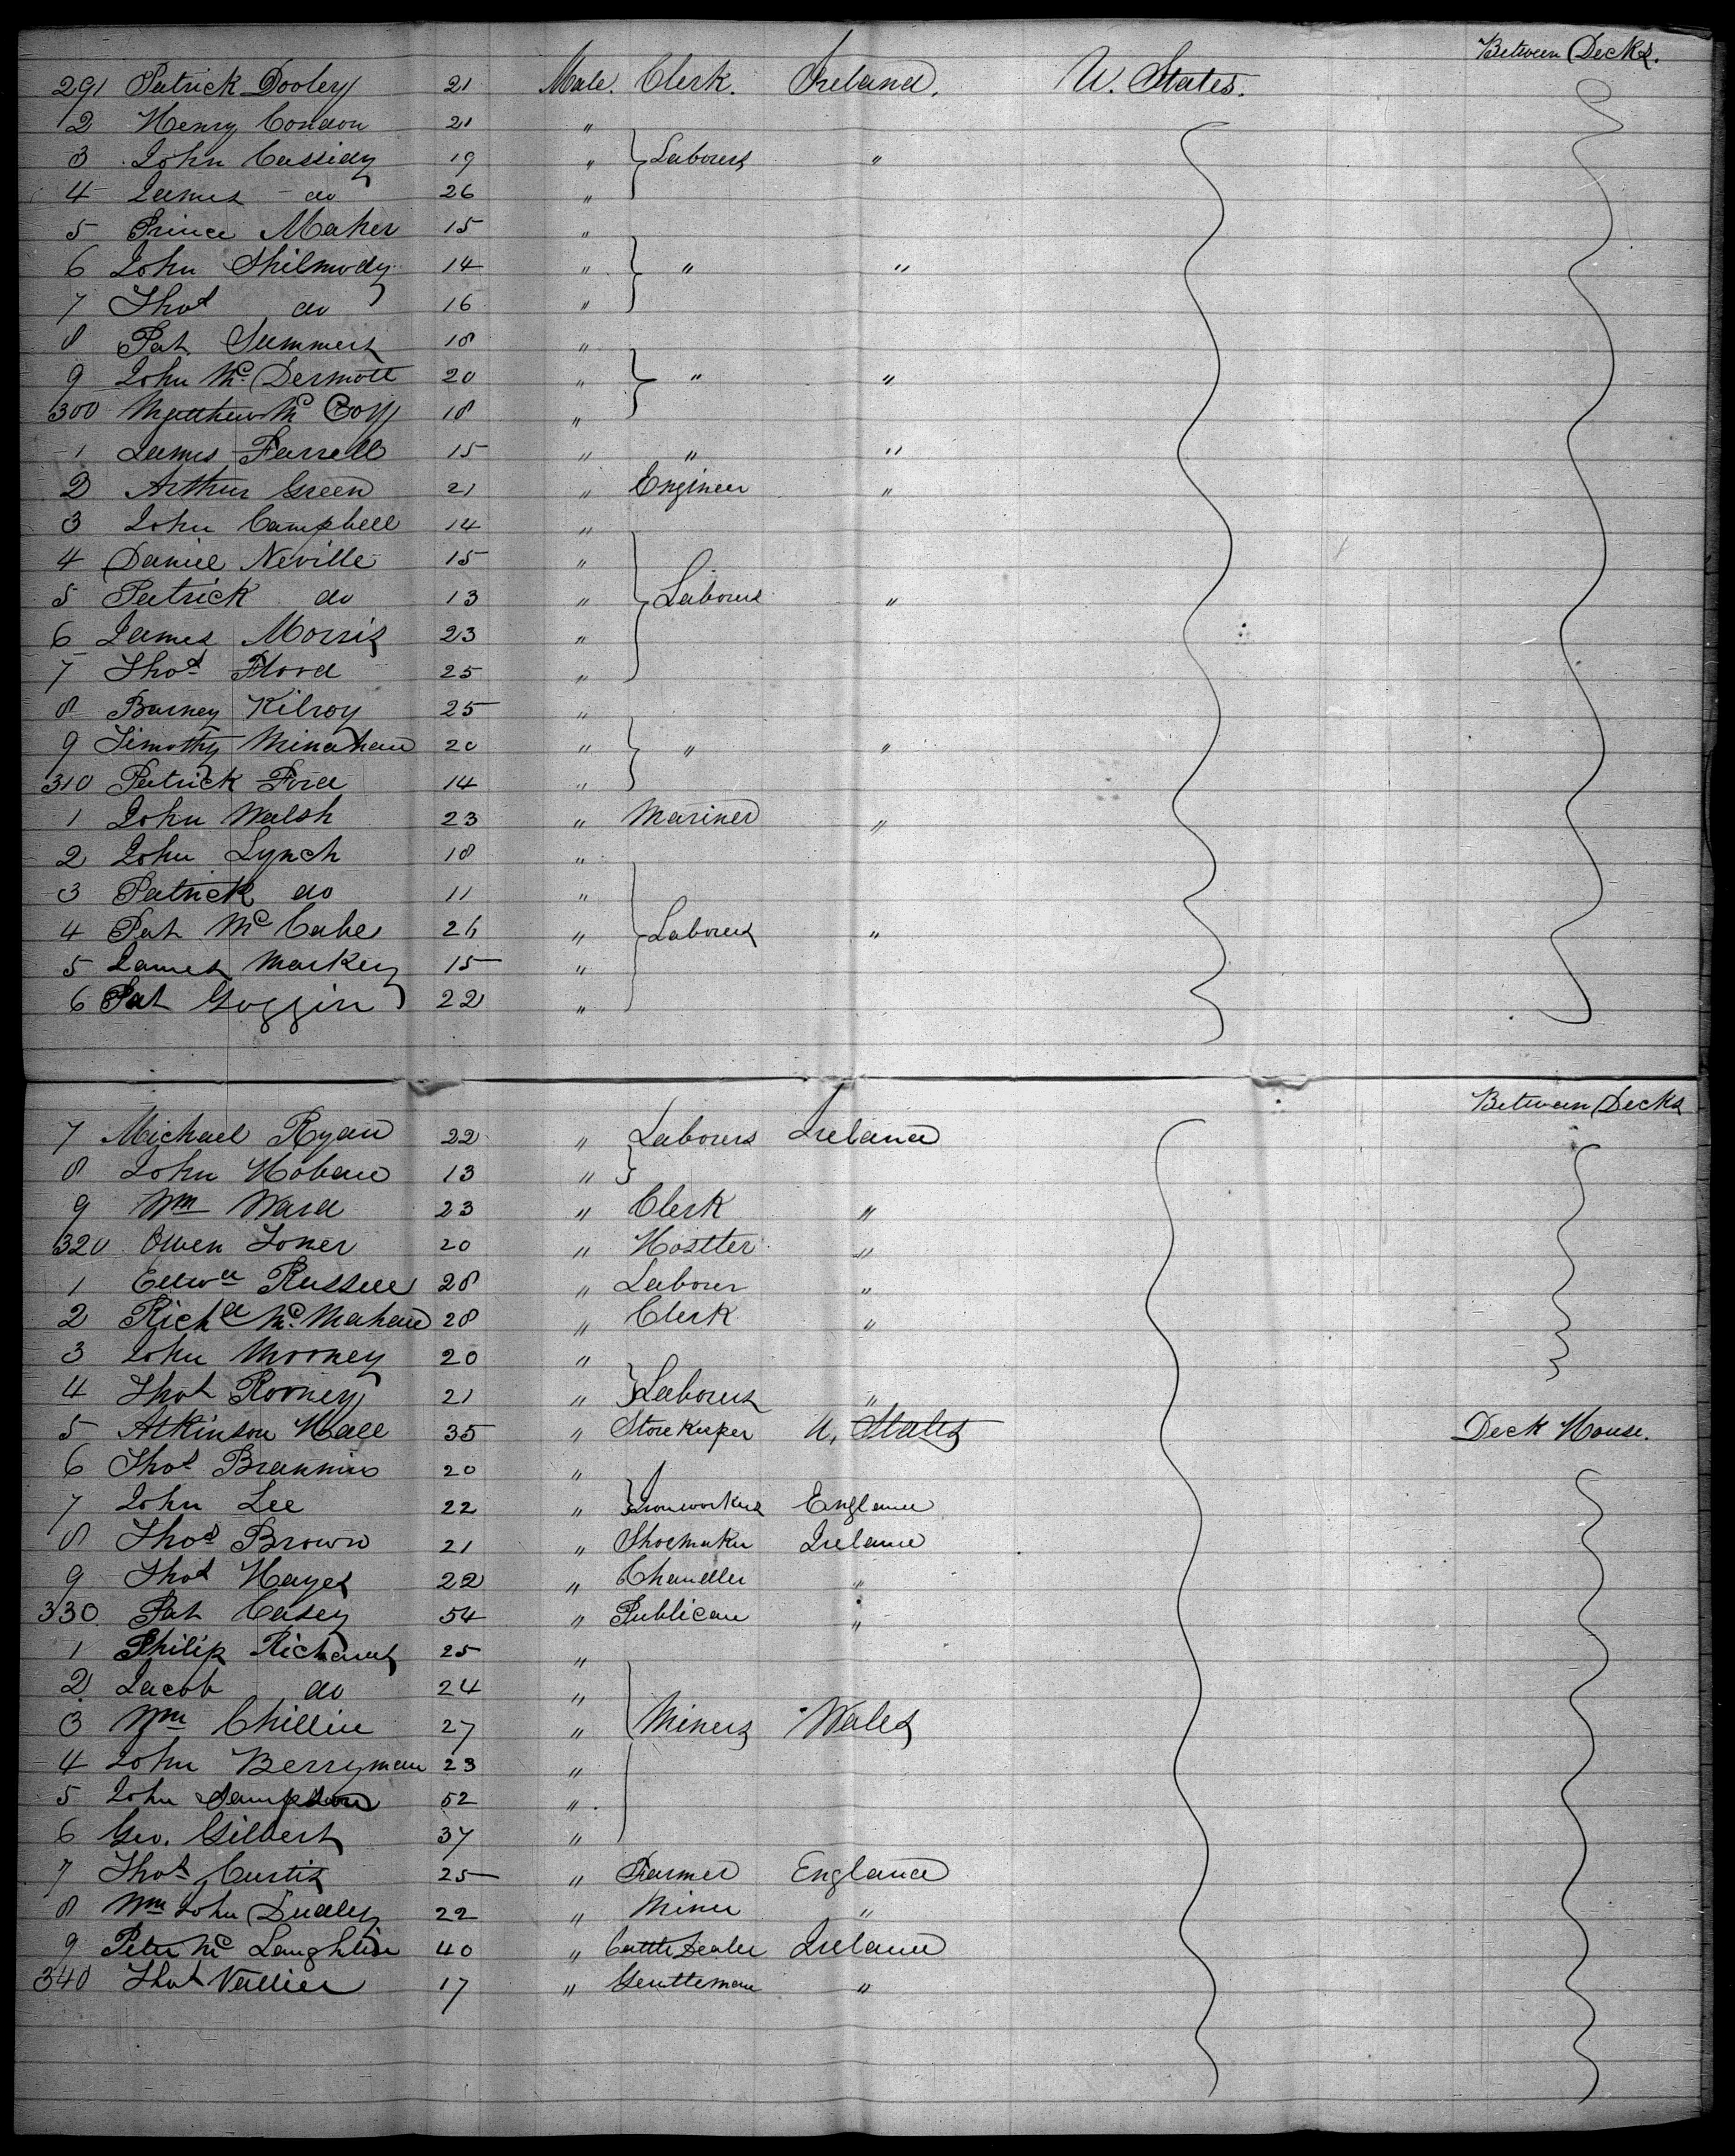 Between Decks.
291 Patrick Dooley 21 Male. Clerk. Ireland. U. States.
2 Henry Condon 21 "
3 John Cassidy 19 " } Laborers "
4 James do 26 "
5 Prince Maher 15 "
6 John 14 " } " "
7 Thos do 16 "
8 Pat Summers 18 "
9 John Mc Dermott 20 " } " "
300 Matthew Mc Coy 18 "
1 James Farrell 15 " " "
2 Arthur Green 21 " Engineer "
3 John Campbell 14 "
4 Daniel Neville 15 "
5 Patrick do 13 " } Laborers "
6 James Morris 23 "
7 Thos Flood 25 "
8 Barney Kilroy 25 "
9 Timothy Minahan 20 " } " "
310 Patrick Ford 14 "
1 John Walsh 23 " Mariner "
2 John Lynch 18 "
3 Patrick do 11 "
4 Pat McCabe 26 " } Laborers "
5 James Markey 15 "
6 Pat Goggin 22 "
Between Decks
7 Michael Ryan 22 " } Laborers Ireland
8 John Hoban 13 "
9 Wm Ward 23 " Clerk "
320 Owen Toner 20 " Hostler "
1 Edwd Russell 28 " Laborer "
2 Richd McMahan 28 " Clerk "
3 John Mooney 20 "
4 Thos Rooney 21 " } Laborers "
5 Atkinson Hall 35 " Storekeeper U. States Deck House.
6 Thos Brannin 20 "
7 John Lee 22 " } Ironworkers England
8 Thos Brown 21 " Shoemaker Ireland
9 Thos Hayes 22 " Chandler "
330 Pat Casey 54 " Publican "
1 Philip Richards 25 "
2 Jacob do 24 "
3 Wm 27 " } Miners Wales
4 John Berryman 23 "
5 John Sampson 52 "
6 Geo. Gilbert 37 "
7 Thos Curtis 25 " Farmer England
8 Wm John Dudley 22 " Miner "
9 Peter McLaughlin 40 " Cattle Dealer Ireland
340 Thos Vallier 17 " Gentleman "